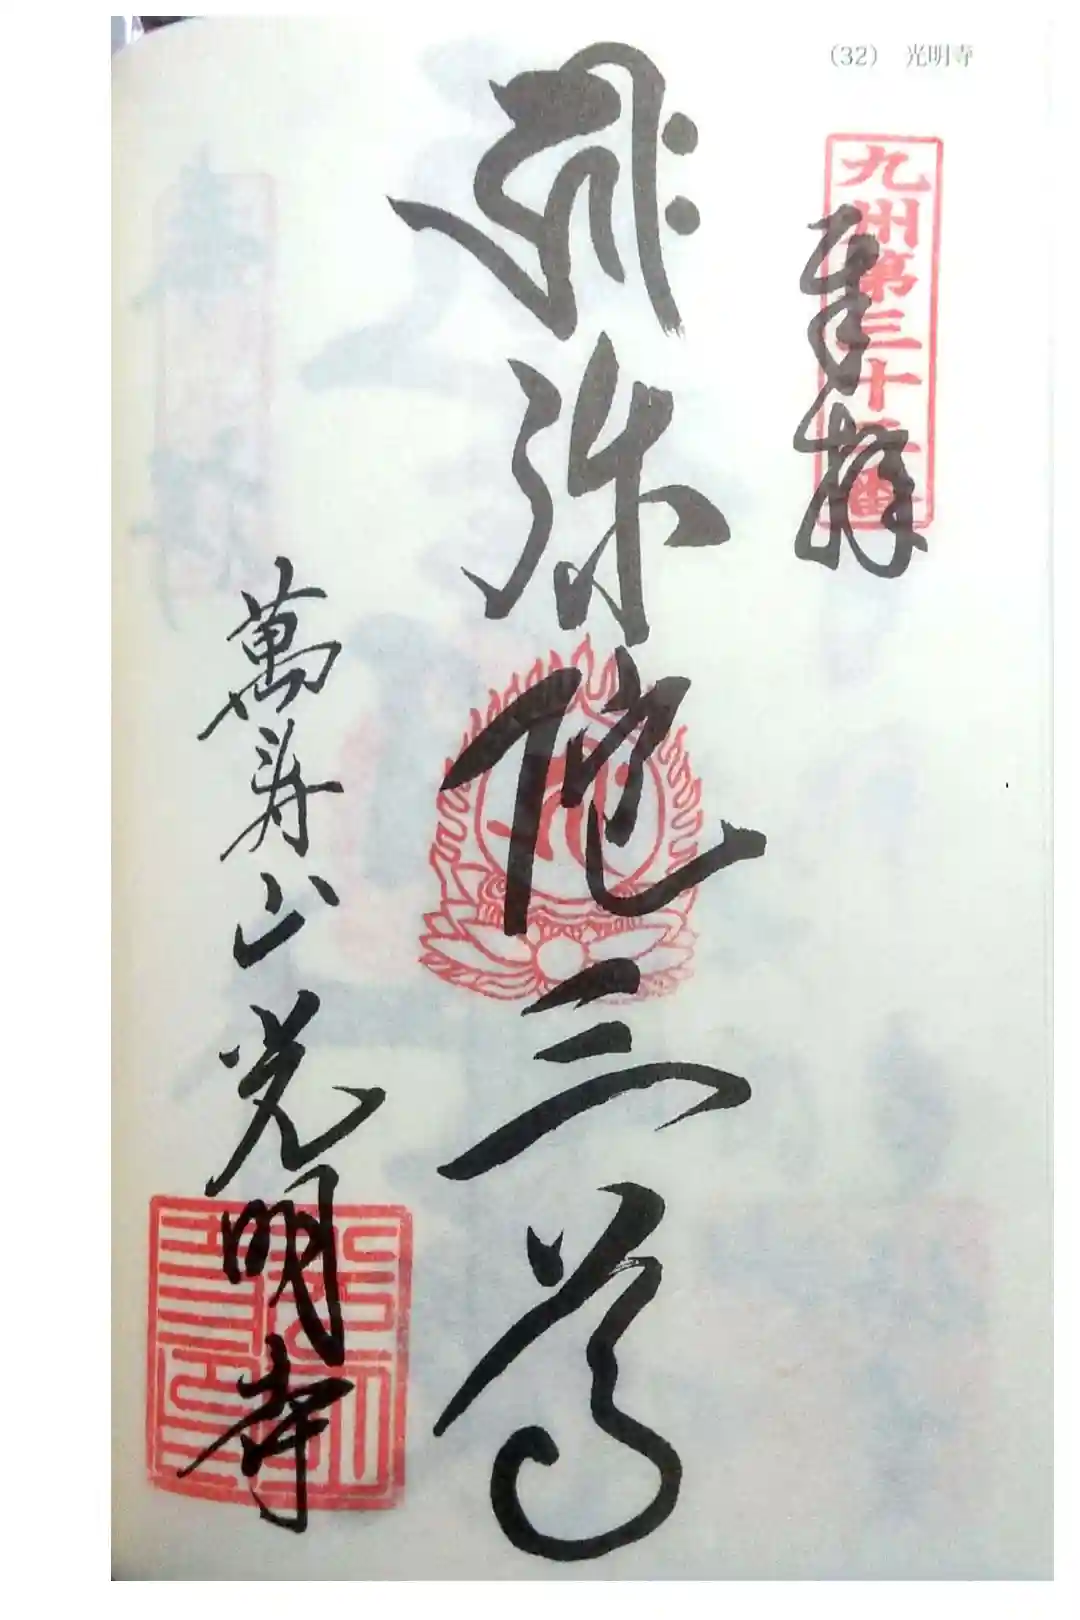 (32) 光明寺
九州第三十二番
奉拝
𑖮𑖿𑖨𑖱𑖾 弥陀三尊
萬寿山光明寺